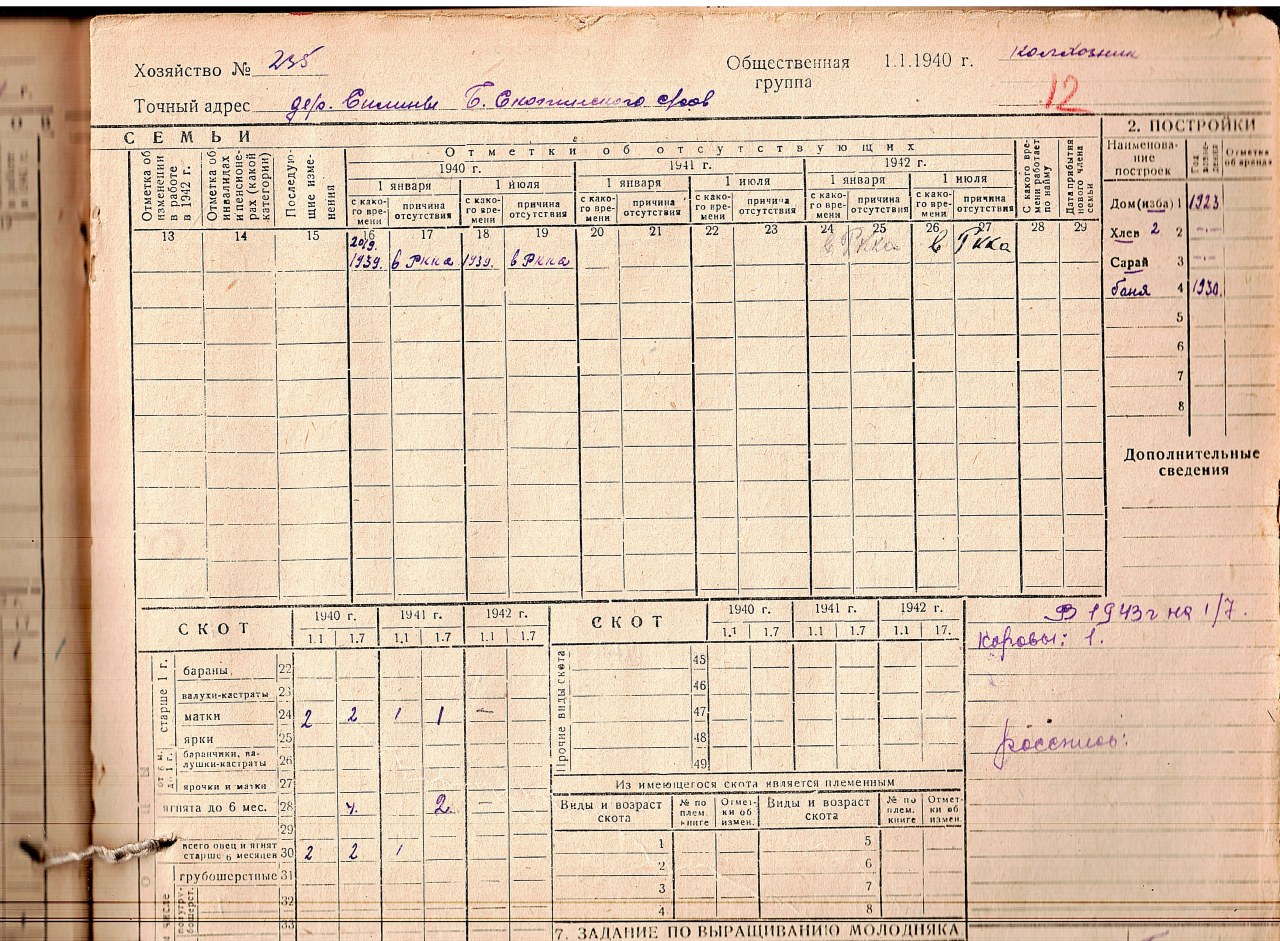 Хозяйство № 235
Общественная группа 1.1.1940 г. колхозник
12
Точный адрес дер. Силины Б.
СЕМЬИ
Отметка об изменении в работе в 1942 г.
Отметка об инвалидах и пенсионерах (какой категории)
Последующие изменения
Отметки об отсутствующих
1940 г. 1941 г. 1942 г.
1 января 1 июля 1 января 1 июля 1 января 1 июля
с какого времени причина отсутствия с какого времени причина отсутствия с какого времени причина отсутствия с какого времени причина отсутствия с какого времени причина отсутствия с какого времени причина отсутствия
С какого времени работает по найму
Дата прибытия нового члена семьи
13 14 15 16 17 18 19 20 21 22 23 24 25 26 27 28 29
20/9. 1939. в Ркка 1939. в Ркка в Ркка в Ркка
2. ПОСТРОЙКИ
Наименование построек
Дом (изба) 1 1923
Хлев 2 2 -"-
Сарай 3 -"-
баня 4 1930.
5
6
7
8
Дополнительные сведения
СКОТ 1940 г. 1941 г. 1942 г.
1.1 1.7 1.1 1.7 1.1 1.7
старше 1 г.
бараны 22
валухи-кастраты 23
матки 24 2 2 1 1 —
ярки 25
от 6 м. до 1 г.
баранчики, валушки-кастраты 26
ярочки и матки 27
ягнята до 6 мес. 28 4. 2 —
29
всего овец и ягнят старше 6 месяцев 30 2 2 1
грубошерстные 31
полугрубошерст. 32
33
СКОТ 1940 г. 1941 г. 1942 г.
1.1 1.7 1.1 1.7 1.1 17.
Прочие виды скота
45
46
47
48
49
Из имеющегося скота является племенным
Виды и возраст скота № по плем. книге Отметки об измен. Виды и возраст скота № по плем. книге Отметки об измен.
1 5
2 6
3 7
4 8
7. ЗАДАНИЕ ПО ВЫРАЩИВАНИЮ МОЛОДНЯКА
В 1943 г на 1/7.
Коровы: 1.